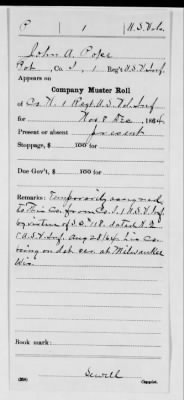 P | 1 | U.S. Vols.
John A. Poke
Pvt, Co. I, 1 Reg't U.S.V. Inf.
Appears on
Company Muster Roll
of Co. K. 1 Regt U.S. Vol. Inf
for Nov & Dec, 1864
Present or absent present
Stoppage, $ 100 for
Due Gov't, $ 100 for
Remarks: Temporarily assigned
to this Co. from Co. I, 1 U.S.V. Inf
by virtue of S.O. 118 dated H.Q.
1 U.S.V. Inf. Aug 28/64 his Co.
being on det. ser. at Milwaukee
Wis.
Book mark:
Sewell
(358) Copyist.